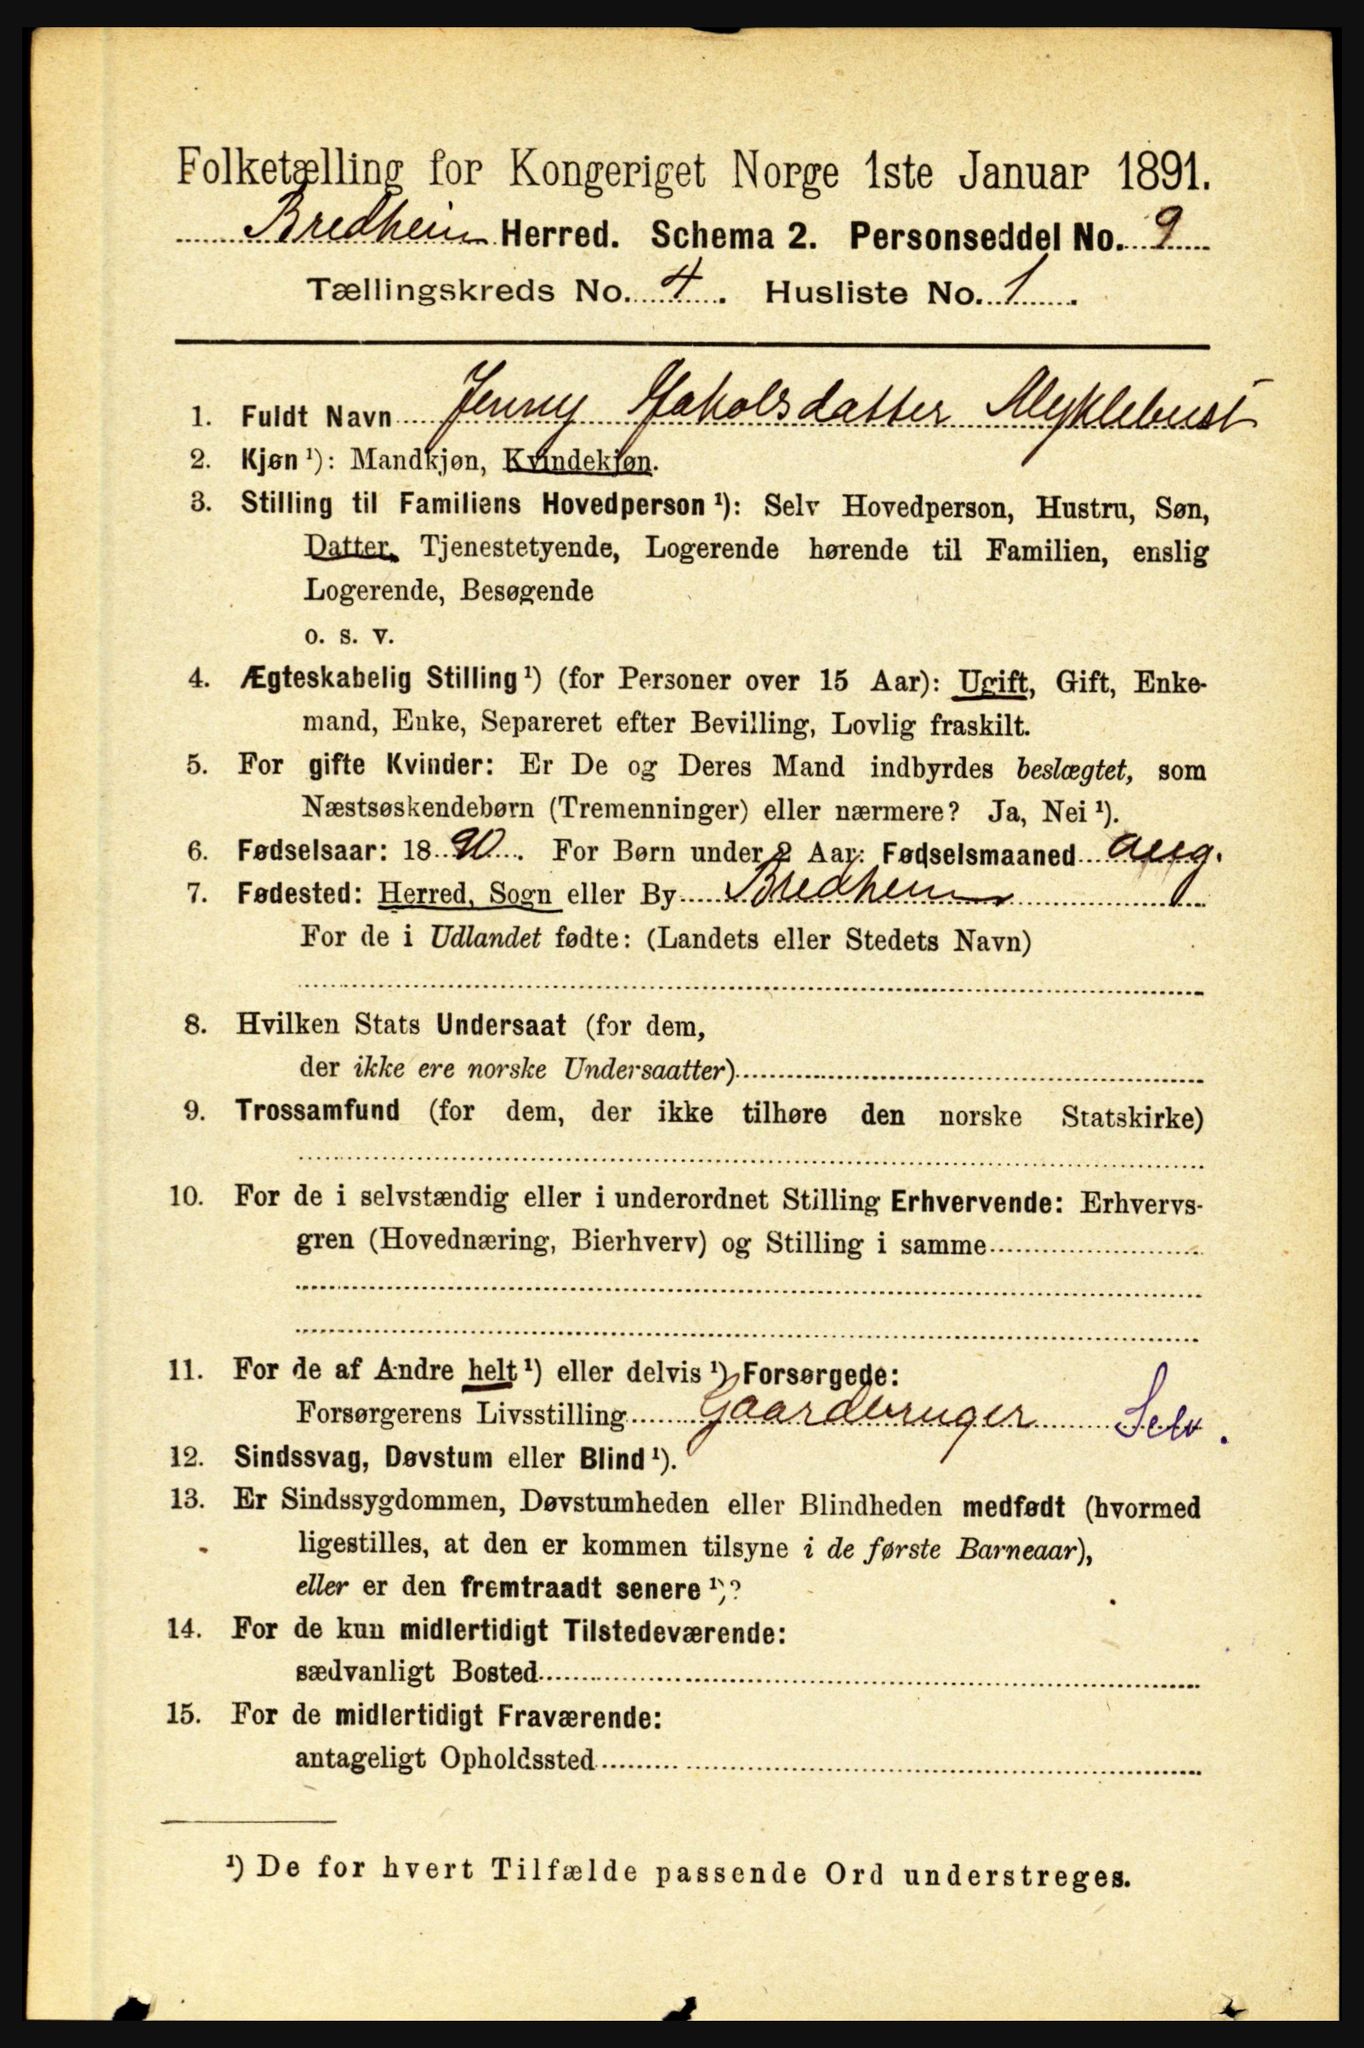 Folketælling for Kongeriget Norge 1ste Januar 1891.
Bredheim Herred. Schema 2. Personseddel No. 9
Tællingskreds No. 4. Husliste No. 1.
1. Fuldt Navn Jenny Jakobsdatter Myklebust
2. Kjøn ¹): Mandkjøn, Kvindekjøn.
3. Stilling til Familiens Hovedperson ¹): Selv Hovedperson, Hustru, Søn,
Datter, Tjenestetyende, Logerende hørende til Familien, enslig
Logerende, Besøgende
o. s. v.
4. Ægteskabelig Stilling ¹) (for Personer over 15 Aar): Ugift, Gift, Enke-
mand, Enke, Separeret efter Bevilling, Lovlig fraskilt.
5. For gifte Kvinder: Er De og Deres Mand indbyrdes beslægtet, som
Næstsøskendebørn (Tremenninger) eller nærmere? Ja, Nei ¹).
6. Fødselsaar: 1890. For Børn under 2 Aar: Fødselsmaaned Aug.
7. Fødested: Herred, Sogn eller By Bredheim
For de i Udlandet fødte: (Landets eller Stedets Navn)
8. Hvilken Stats Undersaat (for dem,
der ikke ere norske Undersaatter)
9. Trossamfund (for dem, der ikke tilhøre den norske Statskirke)
10. For de i selvstændig eller i underordnet Stilling Erhvervende: Erhvervs-
gren (Hovednæring, Bierhverv) og Stilling i samme
11. For de af Andre helt ¹) eller delvis ¹) Forsørgede:
Forsørgerens Livsstilling Gaardbruger Selv.
12. Sindssvag, Døvstum eller Blind ¹).
13. Er Sindssygdommen, Døvstumheden eller Blindheden medfødt (hvormed
ligestilles, at den er kommen tilsyne i de første Barneaar),
eller er den fremtraadt senere ¹)?
14. For de kun midlertidigt Tilstedeværende:
sædvanligt Bosted
15. For de midlertidigt Fraværende:
antageligt Opholdssted
¹) De for hvert Tilfælde passende Ord understreges.